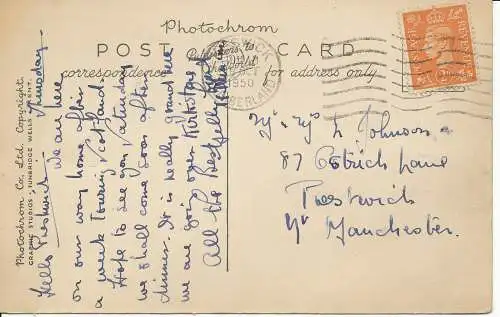 Photochrom
POST CARD
correspondence
for address only
KESWICK
OCT
1950
CUMBERLAND
POSTAGE REVENUE
Photochrom Co., Ltd. Copyright.
GRAPHIC STUDIOS, TUNBRIDGE WELLS, KENT.
Thursday.
Hello
We are here
on our way home after
a week Touring Scotland.
Hope to see you Saturday
we shall come soon after
dinner. It is really grand here
we are going over Kirkstone
All the Best
Mr Mrs L Johnson
87 Ostrich Lane
Prestwich
Nr Manchester.